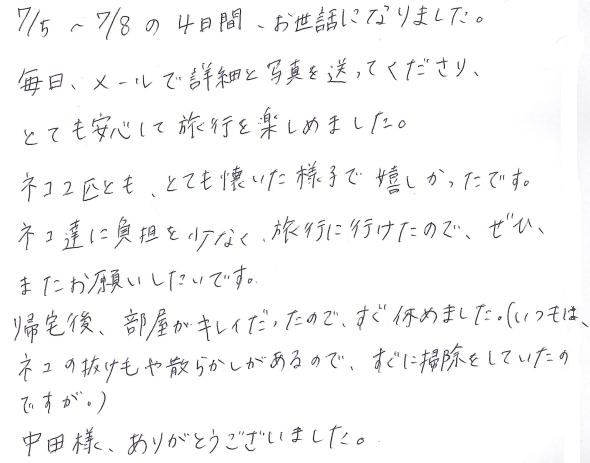 7/5 ~ 7/8 の 4日間、お世話になりました。
毎日、メールで詳細と写真を送ってくださり、
とても安心して旅行を楽しめました。
ネコ2匹とも、とても懐いた様子で嬉しかったです。
ネコ達に負担を少なく、旅行に行けたので、ぜひ、
またお願いしたいです。
帰宅後、部屋がキレイだったので、すぐ休めました。(いつもは、
ネコの抜けもや散らかしがあるので、すぐに掃除をしていたの
ですが。)
中田様、ありがとうございました。